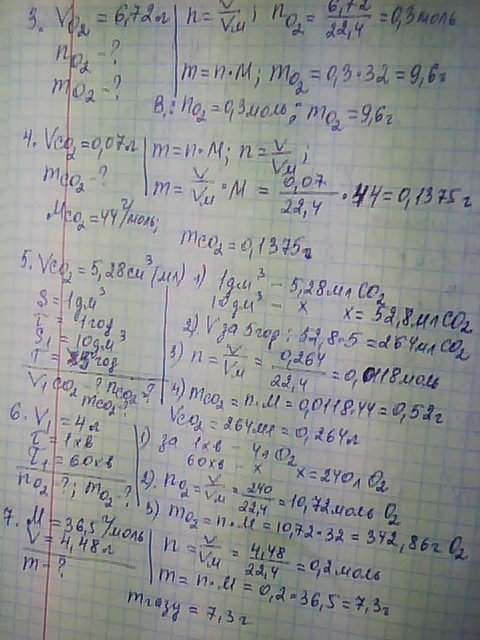 3. V O₂ = 6,72 л | n = V/Vм ; n O₂ = 6,72/22,4 = 0,3 моль
n O₂ - ?
m O₂ - ? | m = n·M; m O₂ = 0,3·32 = 9,6 г
В.: n O₂ = 0,3 моль; m O₂ = 9,6 г
4. V CO₂ = 0,07 л | m = n·M; n = V/Vм ;
m CO₂ - ? | m = V/Vм · M = 0,07/22,4 · 44 = 0,1375 г
M CO₂ = 44 г/моль;
m CO₂ = 0,1375 г
5. V CO₂ = 5,28 см³ (мл) 1) 1 дм³ – 5,28 мл CO₂
S = 1 дм³ | 10 дм³ – x x = 52,8 мл CO₂
τ = 1 год | 2) V за 5 год: 52,8·5 = 264 мл CO₂
S₁ = 10 дм³ | 3) n = V/Vм = 0,264/22,4 = 0,0118 моль
τ = 5 год
V₁ CO₂ - ? n CO₂ - ? | 4) m CO₂ = n·M = 0,0118·44 = 0,52 г
m CO₂ - ? V CO₂ = 264 мл = 0,264 л
6. V₁ = 4 л | 1) за 1 хв – 4 л O₂
τ = 1 хв | 60 хв – x x = 240 л O₂
τ₁ = 60 хв | 2) n O₂ = V/Vм = 240/22,4 = 10,72 моль O₂
n O₂ - ?; m O₂ - ? | 3) m O₂ = n·M = 10,72·32 = 342,86 г O₂
7. M = 36,5 г/моль | n = V/Vм = 4,48/22,4 = 0,2 моль
V = 4,48 л
m - ? | m = n·M = 0,2·36,5 = 7,3 г
m газу = 7,3 г